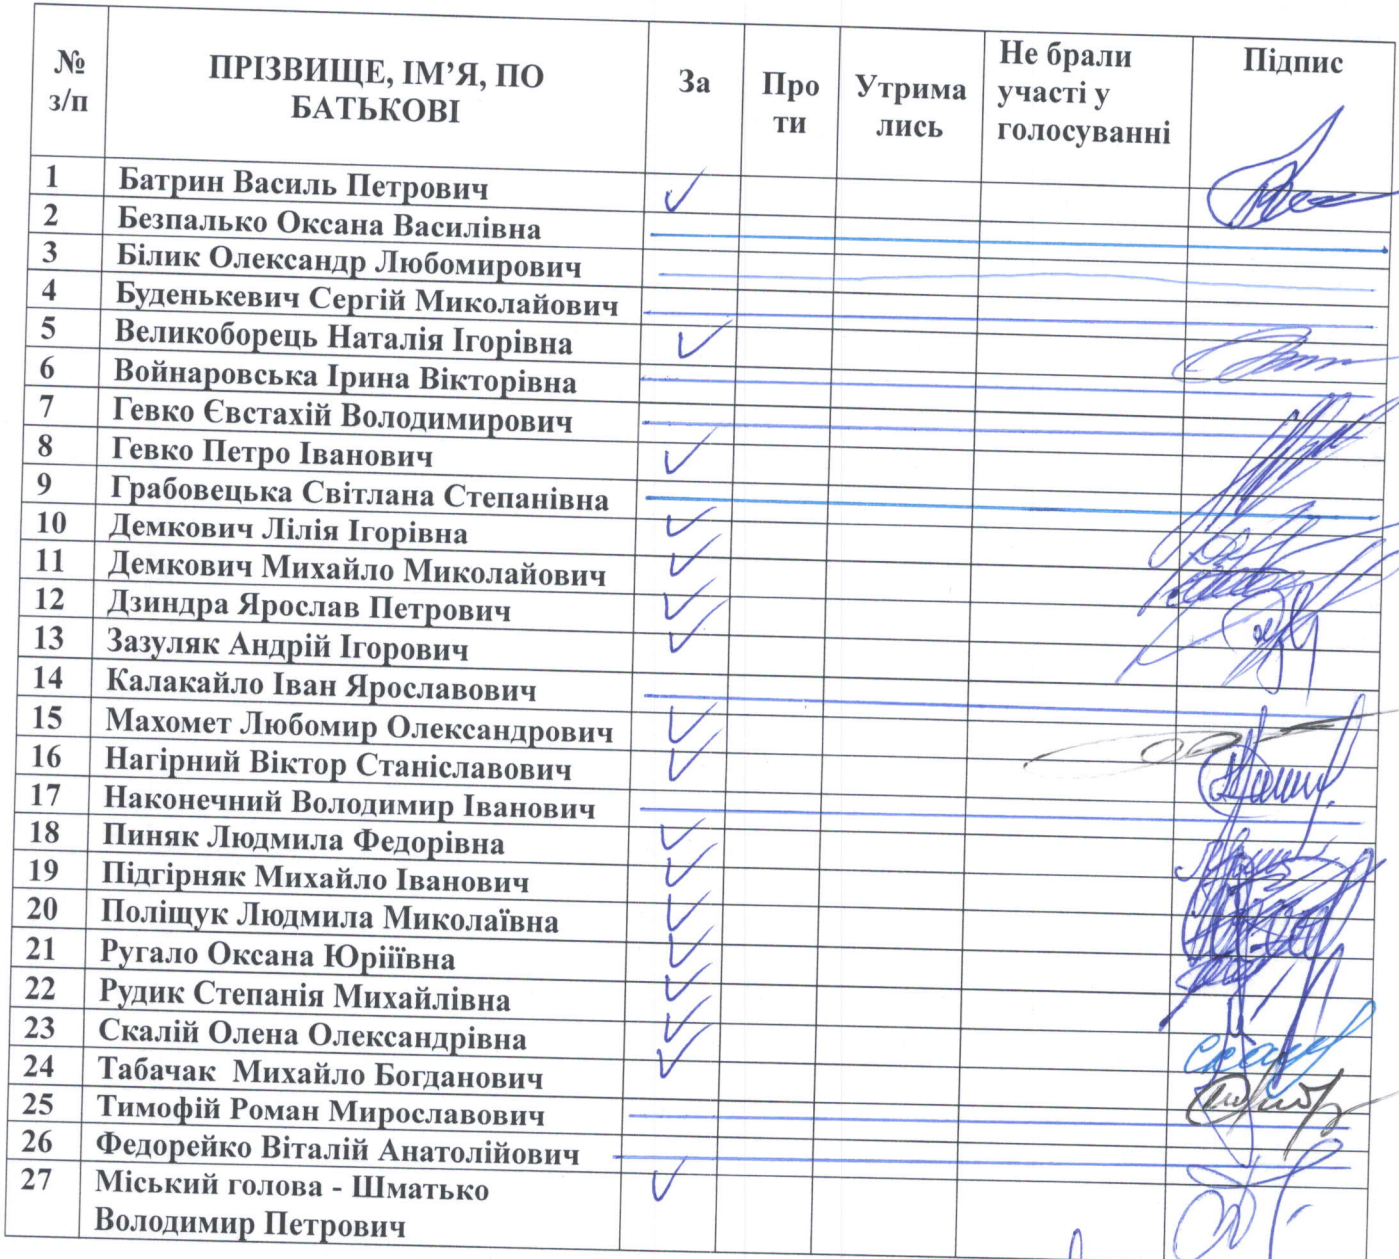 № з/п
ПРІЗВИЩЕ, ІМ’Я, ПО БАТЬКОВІ
За
Про
ти
Утрима
лись
Не брали
участі у
голосуванні
Підпис
1 Батрин Василь Петрович ✓
2 Безпалько Оксана Василівна
3 Білик Олександр Любомирович
4 Буденькевич Сергій Миколайович
5 Великоборець Наталія Ігорівна ✓
6 Войнаровська Ірина Вікторівна
7 Гевко Євстахій Володимирович
8 Гевко Петро Іванович ✓
9 Грабовецька Світлана Степанівна
10 Демкович Лілія Ігорівна ✓
11 Демкович Михайло Миколайович ✓
12 Дзиндра Ярослав Петрович ✓
13 Зазуляк Андрій Ігорович ✓
14 Калакайло Іван Ярославович
15 Махомет Любомир Олександрович ✓
16 Нагірний Віктор Станіславович ✓
17 Наконечний Володимир Іванович
18 Пиняк Людмила Федорівна ✓
19 Підгірняк Михайло Іванович ✓
20 Поліщук Людмила Миколаївна ✓
21 Ругало Оксана Юріїївна ✓
22 Рудик Степанія Михайлівна ✓
23 Скалій Олена Олександрівна ✓
24 Табачак Михайло Богданович ✓
25 Тимофій Роман Мирославович
26 Федорейко Віталій Анатолійович
27 Міський голова - Шматько ✓
Володимир Петрович